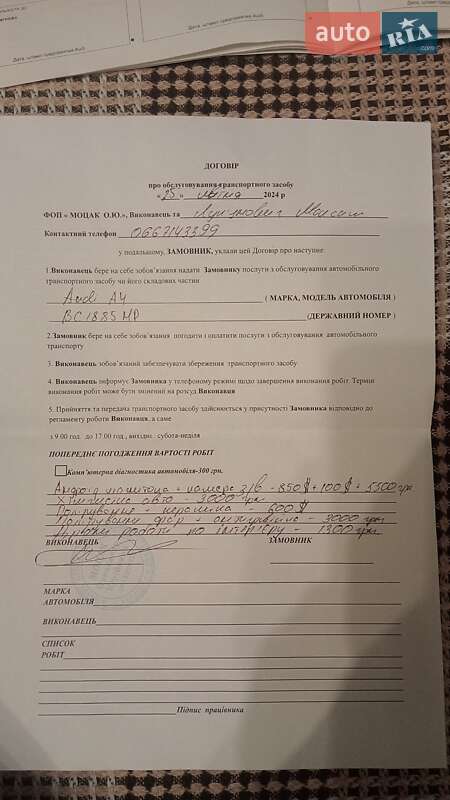 Дата, штамп предприятия
Дата, штамп предприятия
auto RIA .com
ДОГОВІР
про обслуговування транспортного засобу
"25" 2024 р
ФОП « МОЦАК О.Ю.», Виконавець та Максим
Контактний телефон 0667143399
у подальшому, ЗАМОВНИК, уклали цей Договір про наступне:
1.Виконавець бере на себе зобов'язання надати Замовнику послуги з обслуговування автомобільного
транспортного засобу чи його складових частин
Audi A4 ( МАРКА, МОДЕЛЬ АВТОМОБІЛЯ )
BC1885MP (ДЕРЖАВНИЙ НОМЕР )
2.Замовник бере на себе зобов'язання погодити і оплатити послуги з обслуговування автомобільного
транспорту
3. Виконавець зобов'язаний забезпечувати збереження транспортного засобу
4. Виконавець інформує Замовника у телефоному режимі щодо завершення виконання робіт. Термін
виконання робіт може бути змінений на розсуд Виконавця
5. Прийняття та передача транспортного засобу здійснюється у присутності Замовника відповідно до
регламенту роботи Виконавця, а саме
з 9:00 год. до 17:00 год., вихідні : субота-неділя
ПОПЕРЕДНЄ ПОГОДЖЕННЯ ВАРТОСТІ РОБІТ
Комп'ютерна діагностика автомобіля-300 грн.
+ камера з/в - 850$ + 100$ + 5500 грн
Хімчистка авто - 3000 грн
Полірування + кераміка - 600$
Полірування фар + - 3000 грн
роботи по інтер'єру - 1300 грн
ВИКОНАВЕЦЬ ЗАМОВНИК
МАРКА
АВТОМОБІЛЯ
ВИКОНАВЕЦЬ
СПИСОК
РОБІТ
Підпис працівника